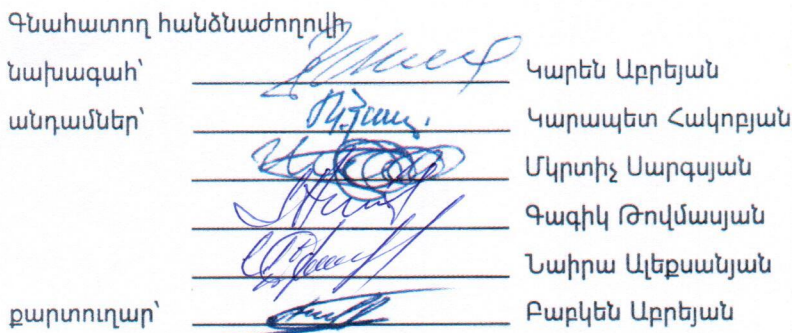 Գնահատող հանձնաժողովի
նախագահ՝ Կարեն Աբրեյան
անդամներ՝ Կարապետ Հակոբյան
Մկրտիչ Սարգսյան
Գագիկ Թովմասյան
Նաիրա Ալեքսանյան
քարտուղար՝ Բաբկեն Աբրեյան